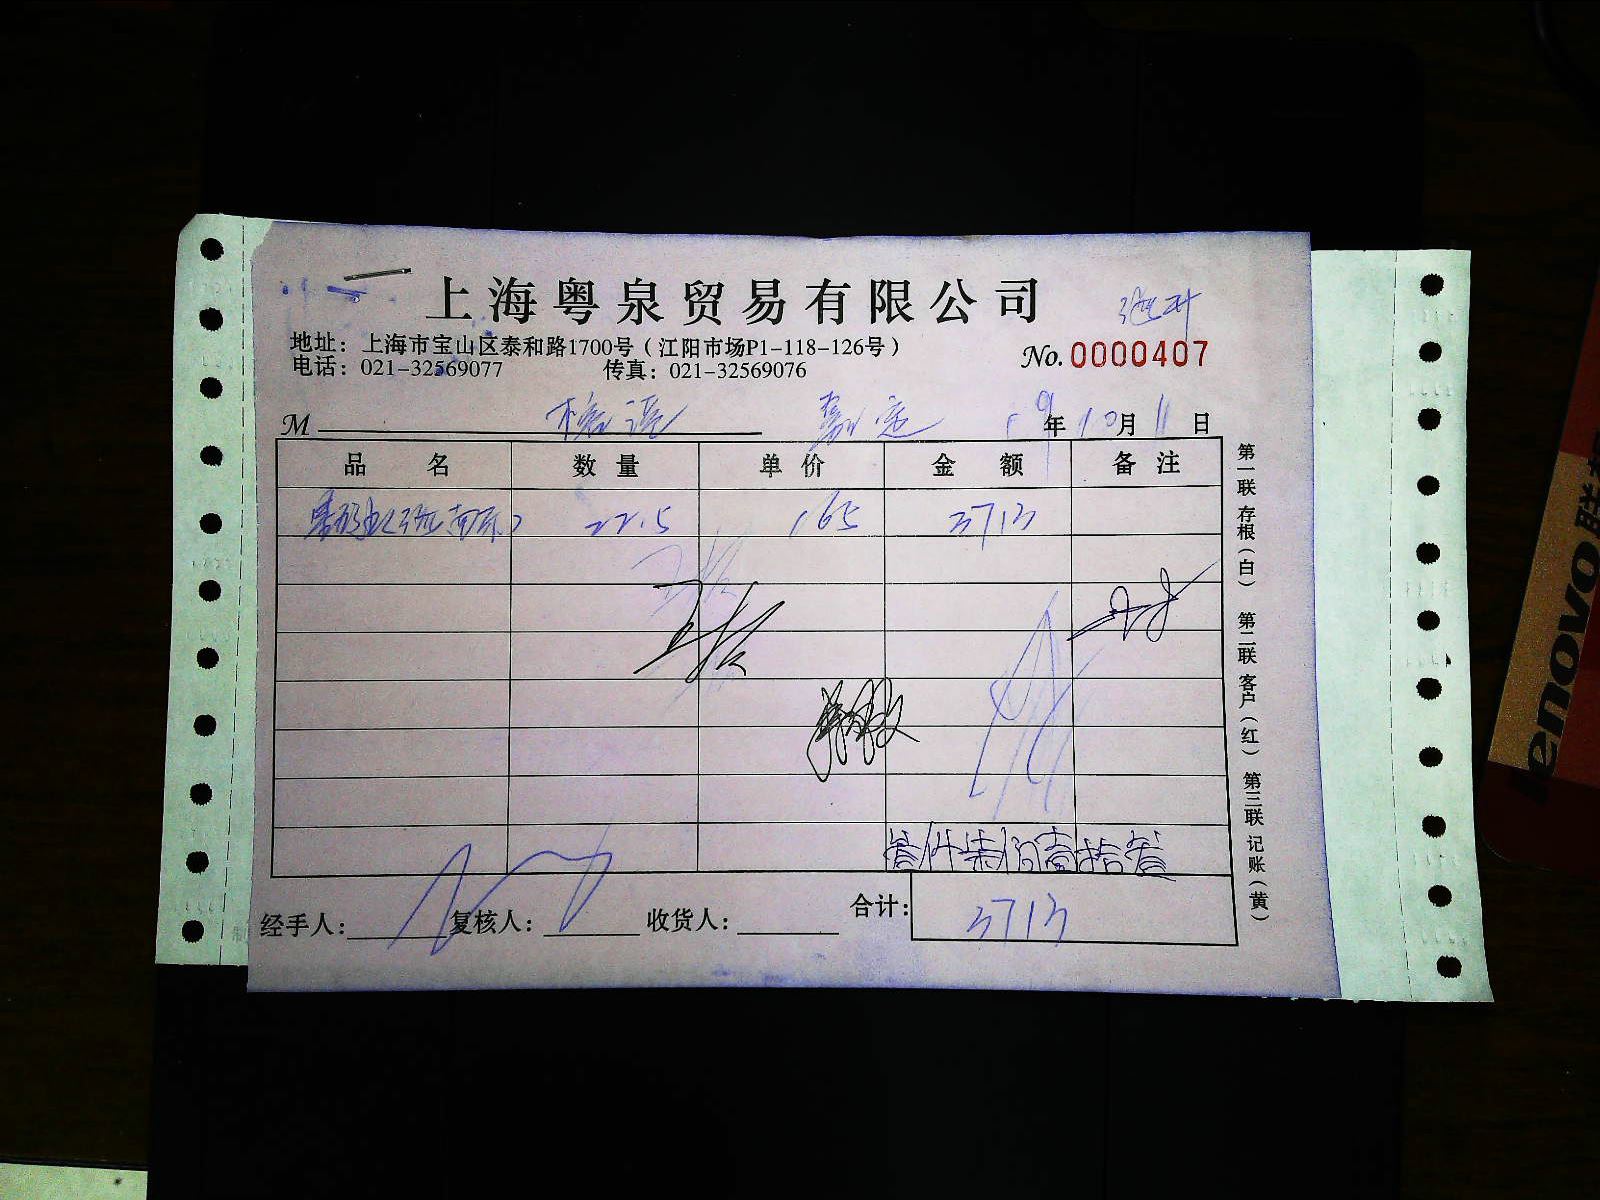 上海粤泉贸易有限公司
地址：上海市宝山区泰和路1700号（江阳市场P1-118-126号）
No. 0000407
电话：021-32569077 传真：021-32569076
M 嘉定 19年10月11日
品名 数量 单价 金额 备注
22.5 165 3713
叁仟柒佰壹拾叁
经手人： 复核人： 收货人： 合计： 3713
第一联 存根（白） 第二联 客户（红） 第三联 记账（黄）
lenovo 联想